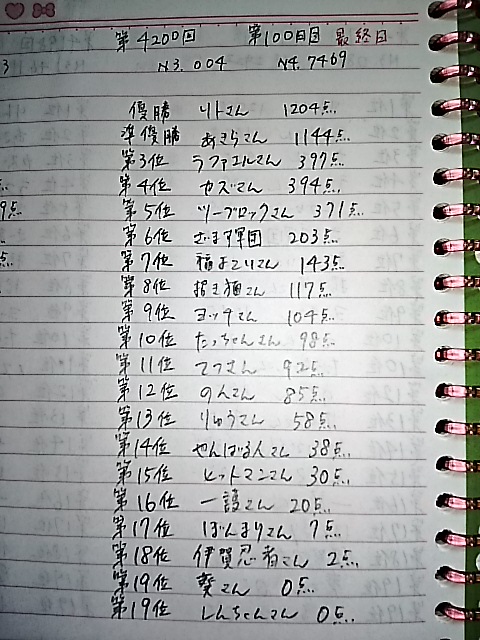 第4200回 第100日目 最終日
N3.004 N4.7469
優勝 リトさん 1204点
準優勝 あきらさん 1144点
第3位 ラファエルさん 397点
第4位 カズさん 394点
第5位 ツーブロックさん 371点
第6位 ざます軍団 203点
第7位 福よこいさん 143点
第8位 招き猫さん 117点
第9位 ヨッチさん 104点
第10位 たっちゃんさん 98点
第11位 てつさん 92点
第12位 のんさん 85点
第13位 りゅうさん 58点
第14位 やんばる人さん 38点
第15位 ヒットマンさん 30点
第16位 一護さん 20点
第17位 ぼんまりさん 7点
第18位 伊賀忍者さん 2点
第19位 葵さん 0点
第19位 しんちゃんさん 0点